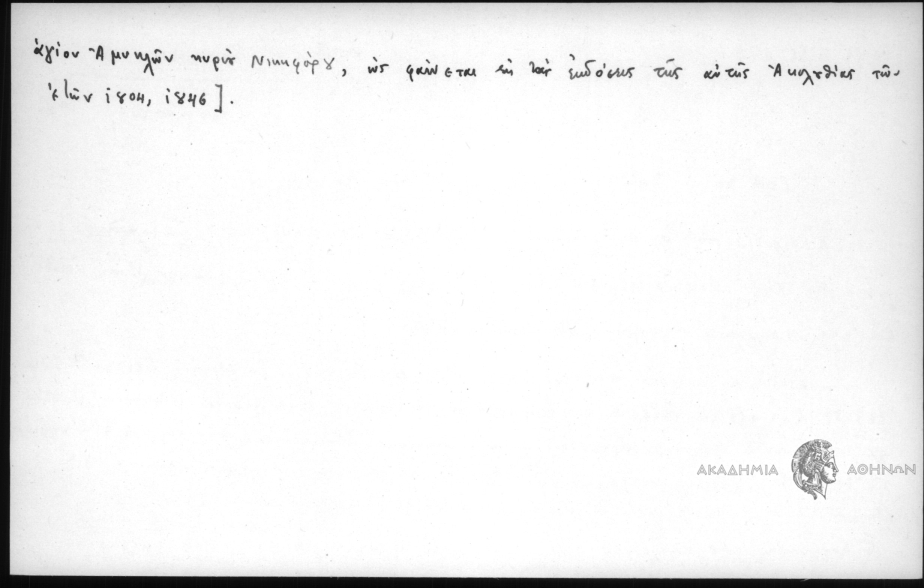 ἁγίου Ἀμυκλῶν κυρίου Νικηφόρου, ὡς φαίνεται ἐκ τῶν ἐκδόσεως τῆς αὐτῆς Ἀκολουθίας τῶν
ἐτῶν 1804, 1846].
ΑΚΑΔΗΜΙΑ ΑΘΗΝΩΝ